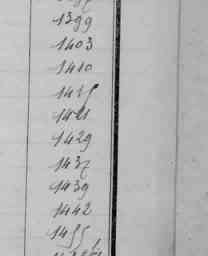 1399
1403
1410
1421
1429
1437
1439
1442
1455